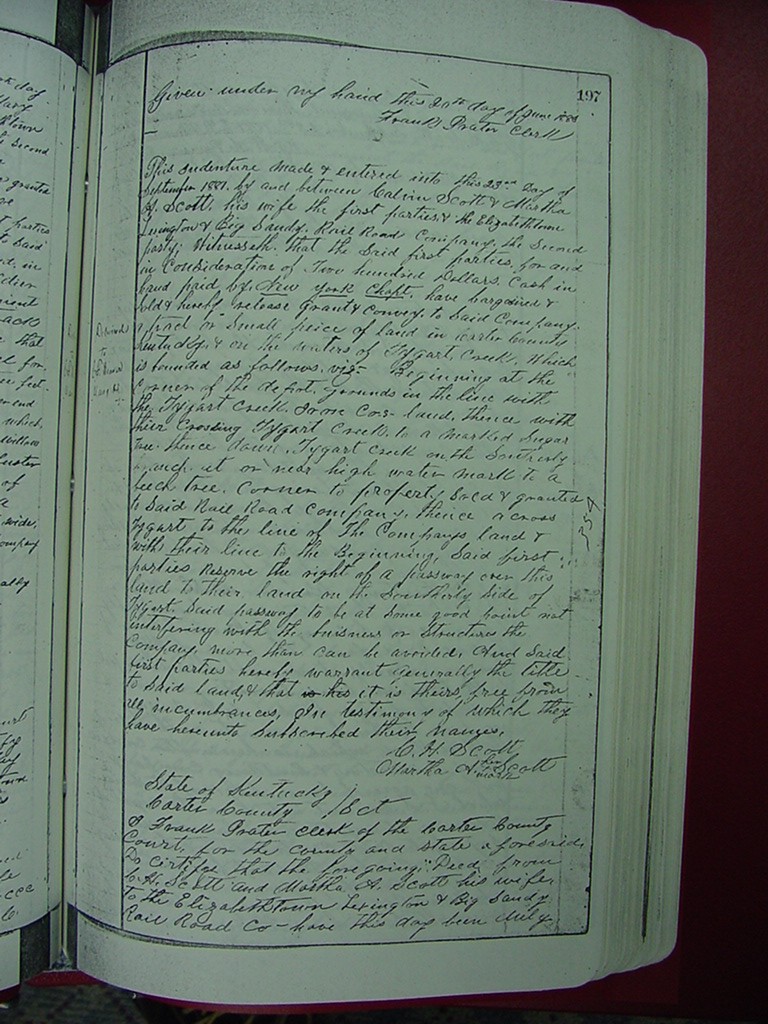 197
Given under my hand this 20th day of June 188
Frank Prater Clerk
This indenture made & entered into this 23rd day of
September 1881. by and between Calvin Scott & Martha
A. Scott, his wife the first parties, & the Elizabethtown
Lexington & Big Sandy. Rail Road Company, the Second
party; Witnesseth. that the Said first parties, for and
in Consideration of Two hundred Dollars. Cash in
hand paid by. New york Chapt. have bargained &
sold & hereby release Grant & Convey. to Said Company.
a tract or Small peice of land in Carter County
Kentucky. & on the waters of Tygart Creek. Which
is bounded as follows. viz- Beginning at the
Corner of the depot. grounds in the line with
the Tygart Creek. Iron Cos- land. thence with
their Crossing Tygart Creek. to a marked Sugar
tree. thence down. Tygart creek on the Southerly
at or near high water mark to a
beech tree. Corner to property. Sold & granted
to Said Rail Road Company. thence across
Tygart to the line of The Companys land &
with their line to the Beginning, Said first
parties Reserve the right of a passway over this
land to their land on the Southerly Side of
Tygart. Said passway to be at Some good point not
interfering with the buisness or Structures the
Company. more, than can be avoided. And Said
first parties hereby warrant generally the title
to Said land, & that is his it is theirs, free from
all incumbrances, In testimony of which they
have hereunto Subscribed their names.
C. H. Scott
Martha A her x mark Scott
State of Kentucky
Carter County / Sct
I Frank Prater clerk of the Carter County
Court, for the county and state aforesaid,
Do certify that the foregoing Deed from
C. H. Scott and Martha A. Scott his wife,
to the Elizabethtown Lexington & Big Sandy
Rail Road Co- have this day been duly
354
Delivered
to